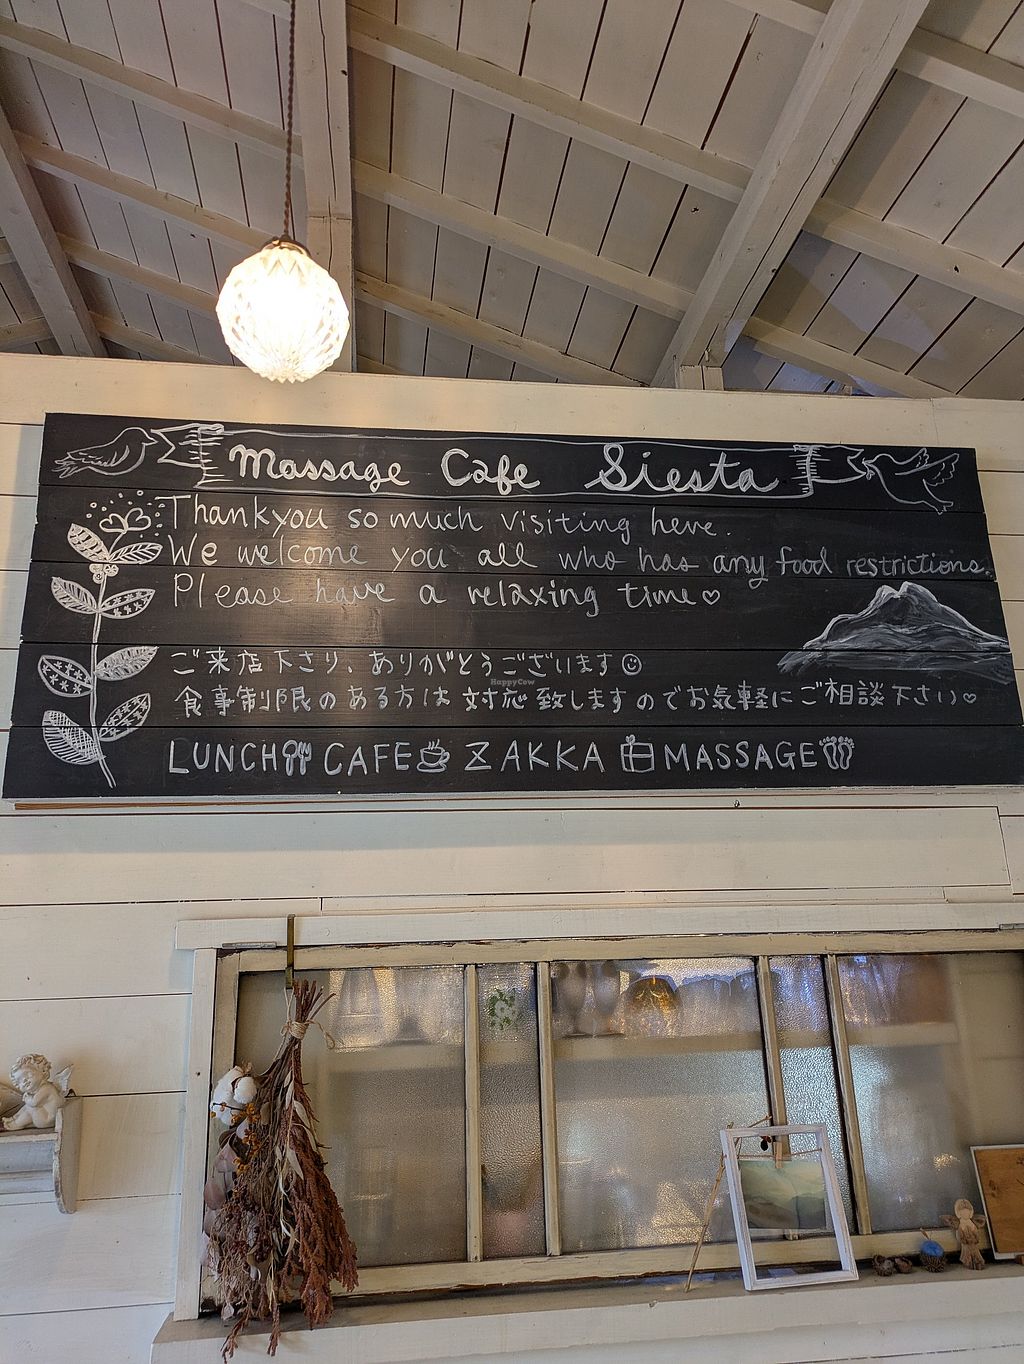 Massage Cafe Siesta
Thankyou so much visiting here.
We welcome you all who has any food restrictions.
Please have a relaxing time♡
ご来店下さり、ありがとうございます☺
HappyCow
食事制限のある方は対応致しますのでお気軽にご相談下さい♡
LUNCH CAFE ZAKKA MASSAGE